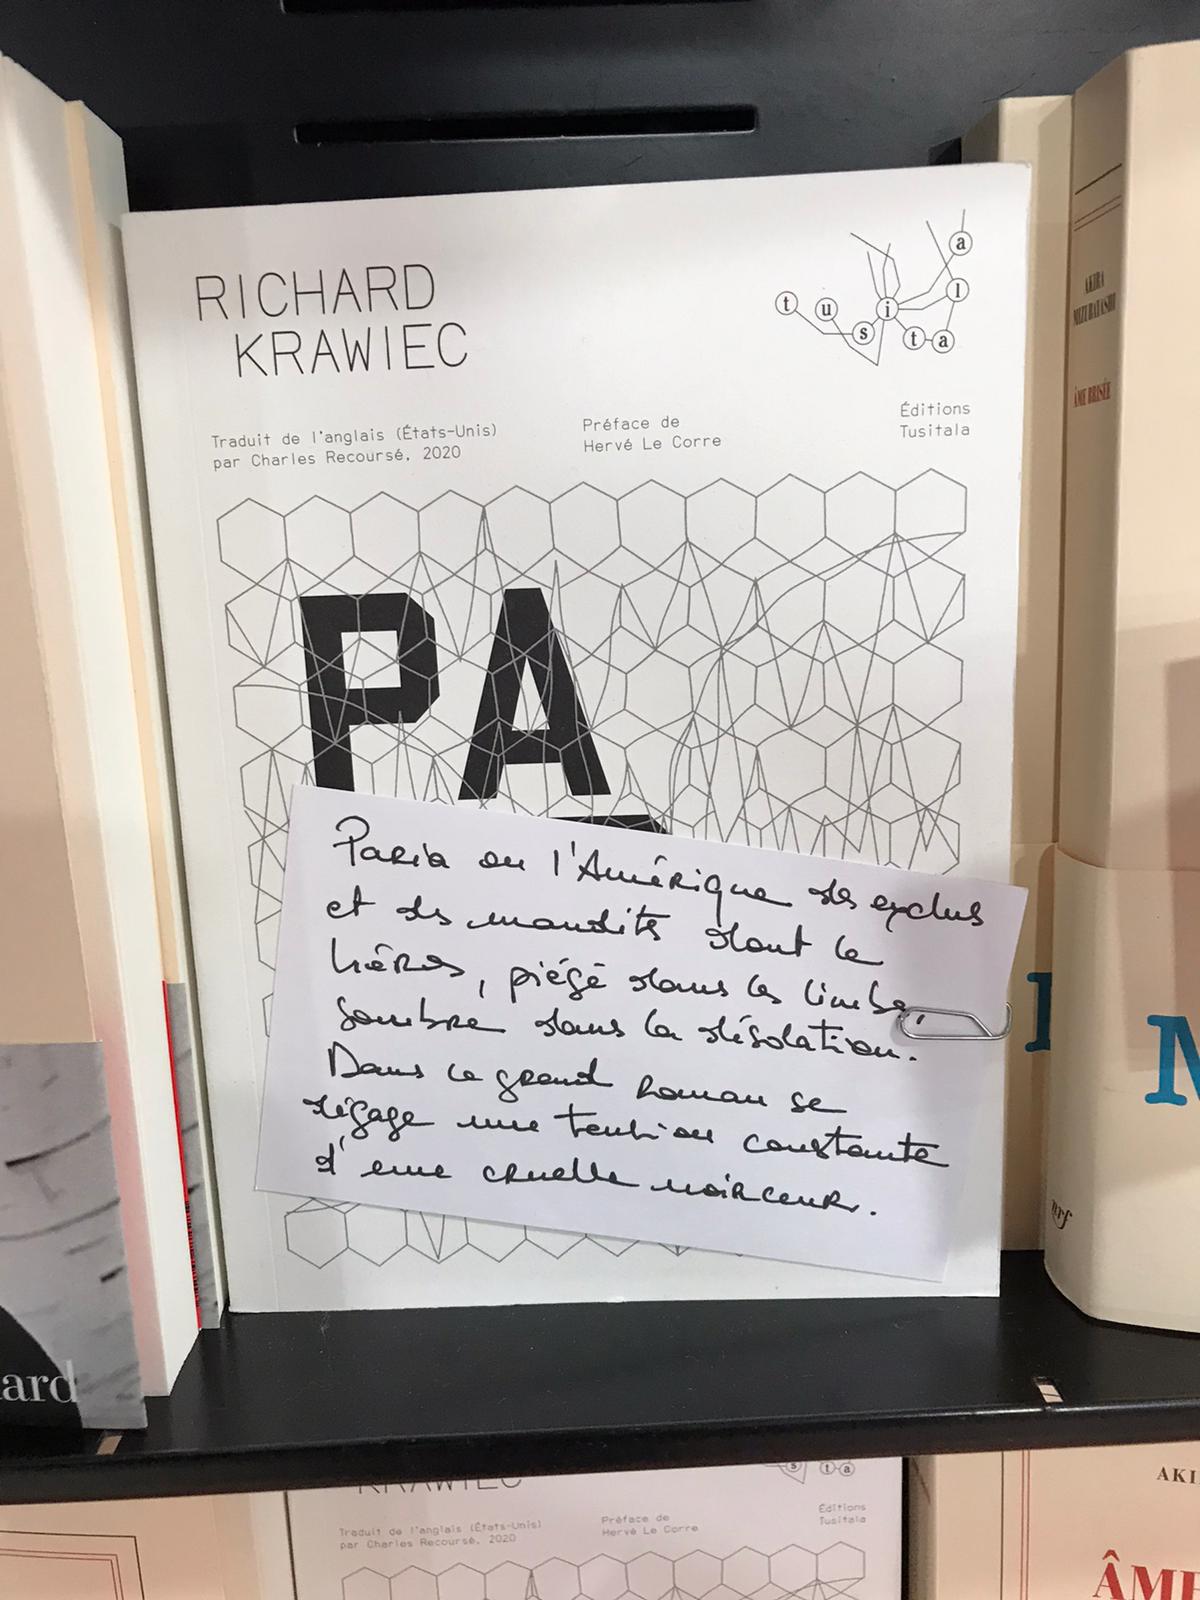 RICHARD
KRAWIEC
tusitala
Traduit de l'anglais (États-Unis)
par Charles Recoursé, 2020
Préface de
Hervé Le Corre
Éditions
Tusitala
PA
Paria ou l'Amérique des exclus
et des maudits dont le
héros, piégé dans les limbes,
sombre dans la désolation.
Dans ce grand roman se
dégage une tension constante
d'une cruelle noirceur.
AKIRA
MIZUBAYASHI
ÂME BRISÉE
nrf
M
ard
KRAWIEC
s t a
Traduit de l'anglais (États-Unis)
par Charles Recoursé, 2020
Préface de
Hervé Le Corre
Éditions
Tusitala
AKI
ÂME